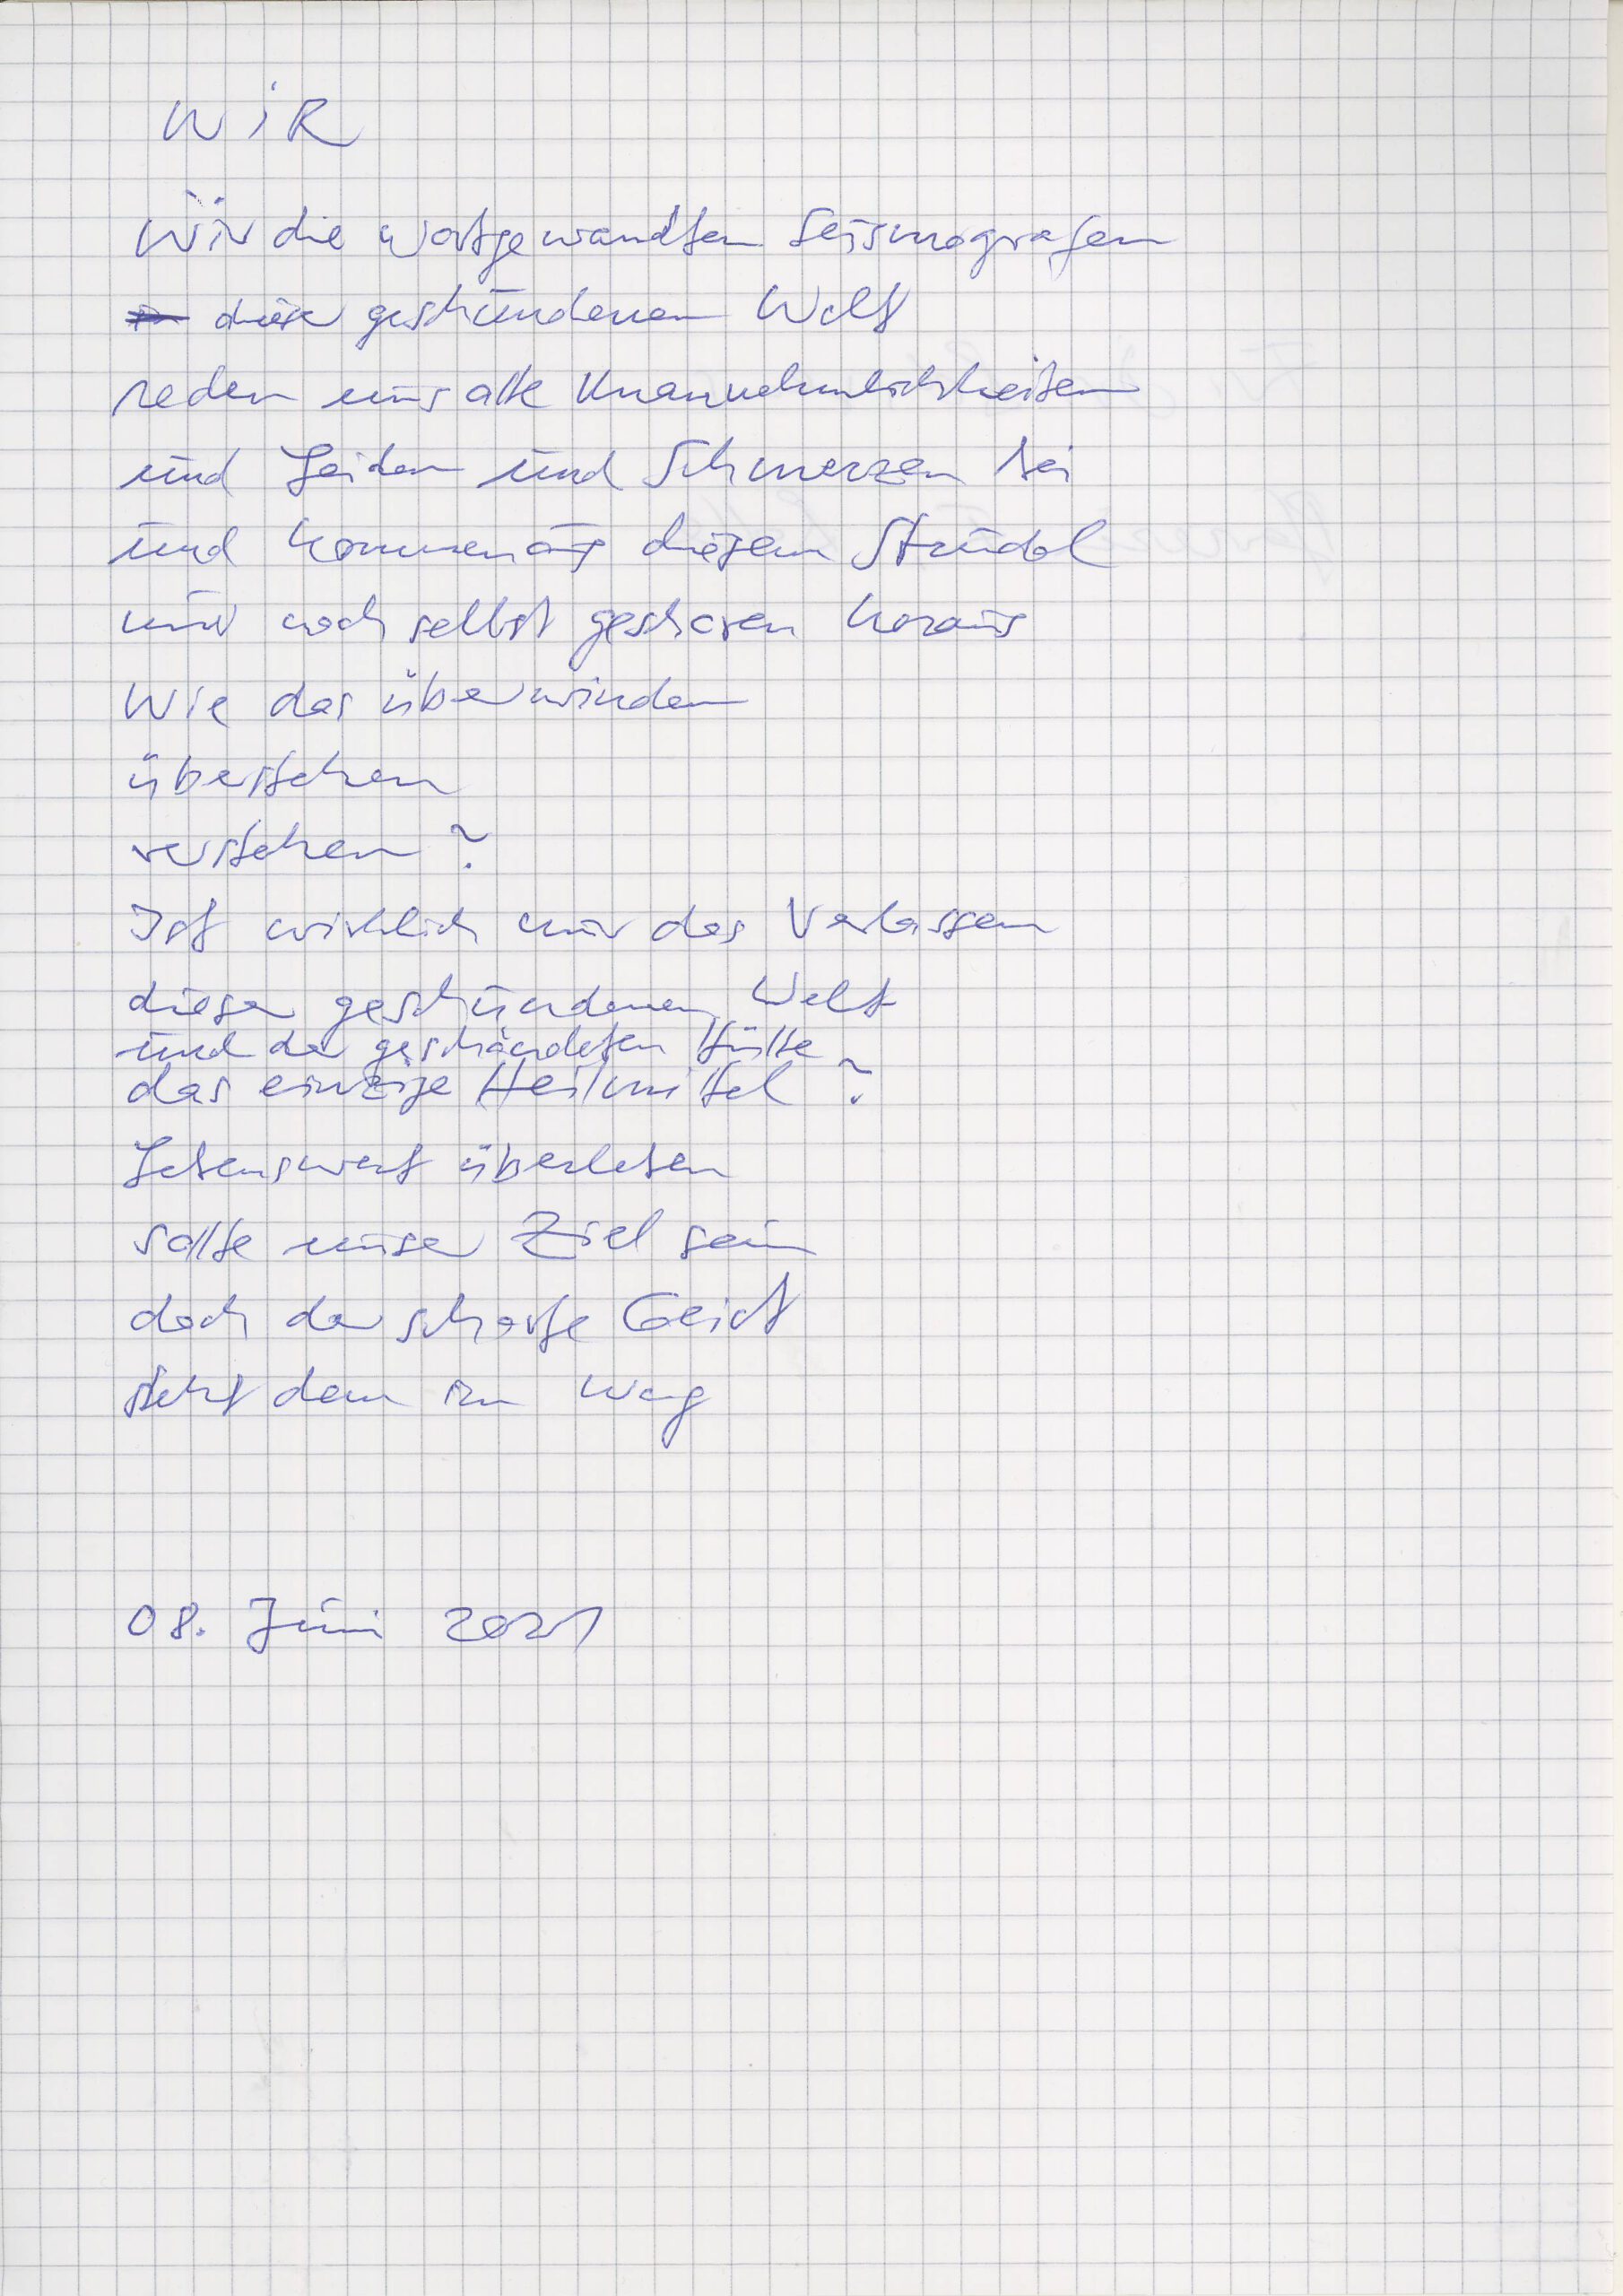 WIR
Wir die wortgewandten Seismografen
dieser geschundenen Welt
reden uns alle Unannehmlichkeiten
und Leiden und Schmerzen bei
und kommen aus diesem Strudel
nur noch selbst geschoren heraus
Wie das überwinden
überstehen
verstehen?
Ist wirklich nur das Verlassen
dieser geschundenen Welt
und der geschändeten Hülle
das einzige Heilmittel?
Lebenswert überleben
sollte unser Ziel sein
doch der scharfe Geist
steht dem im Weg
08. Juni 2021